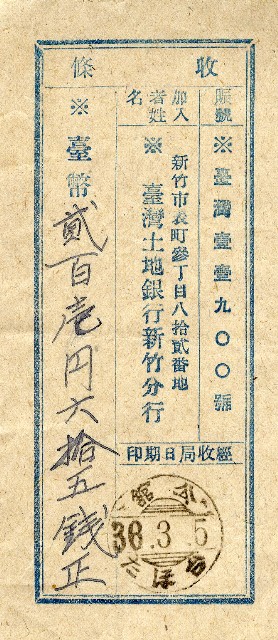 收條
賬號
※臺灣壹壹九〇〇號
加入者姓名
新竹市表町參丁目八拾貳番地
※臺灣土地銀行新竹分行
※臺幣貳百壱円六拾五錢正
經收局日期印
36.3.5